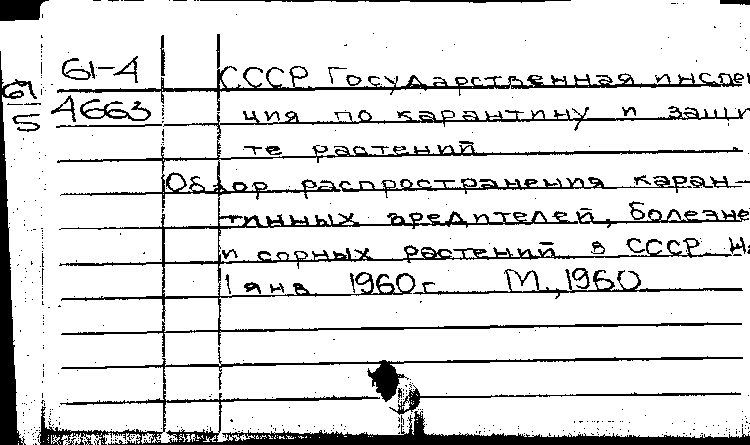 61-4
4663
61
5
СССР Государственная инспек
ция по карантину и защи
те растений
Обзор распространения каран-
тинных вредителей, болезне
и сорных растений в СССР на
1 янв 1960г. М., 1960